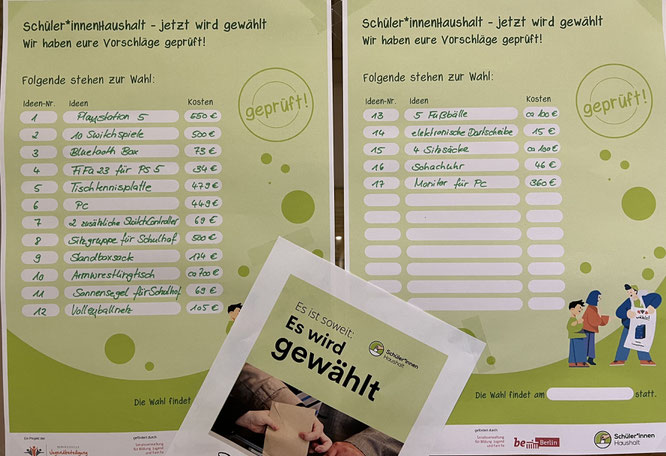 Schüler*innenHaushalt - jetzt wird gewählt
Wir haben eure Vorschläge geprüft!
Folgende stehen zur Wahl:
geprüft!
Ideen-Nr. Ideen Kosten
1 Playstation 5 550 €
2 10 Switchspiele 500 €
3 Bluetooth Box 73 €
4 FiFa 23 für PS 5 34 €
5 Tischtennisplatte 479 €
6 PC 449 €
7 2 zusätzliche Switch Controller 69 €
8 Sitzgruppe für Schulhof 500 €
9 Sandboxsack 174 €
10 Armwrestlingtisch ca 700 €
11 Sonnensegel für Schulhof 69 €
12 Volleyballnetz 105 €
Die Wahl findet
Ein Projekt der
Jugendbeteiligung
gefördert durch
Senatsverwaltung
für Bildung, Jugend
und Familie
Schüler*innenHaushalt - jetzt wird gewählt
Wir haben eure Vorschläge geprüft!
Folgende stehen zur Wahl:
geprüft!
Ideen-Nr. Ideen Kosten
13 5 Fußbälle ca 100 €
14 elektronische Dartscheibe 15 €
15 4 Sitzsäcke ca 100 €
16 Schachuhr 46 €
17 Monitor für PC 360 €
Die Wahl findet am statt.
gefördert durch
Senatsverwaltung
für Bildung, Jugend
und Familie
be Berlin
Schüler*innen
Haushalt
Es ist soweit:
Es wird
gewählt
Schüler*innen
Haushalt